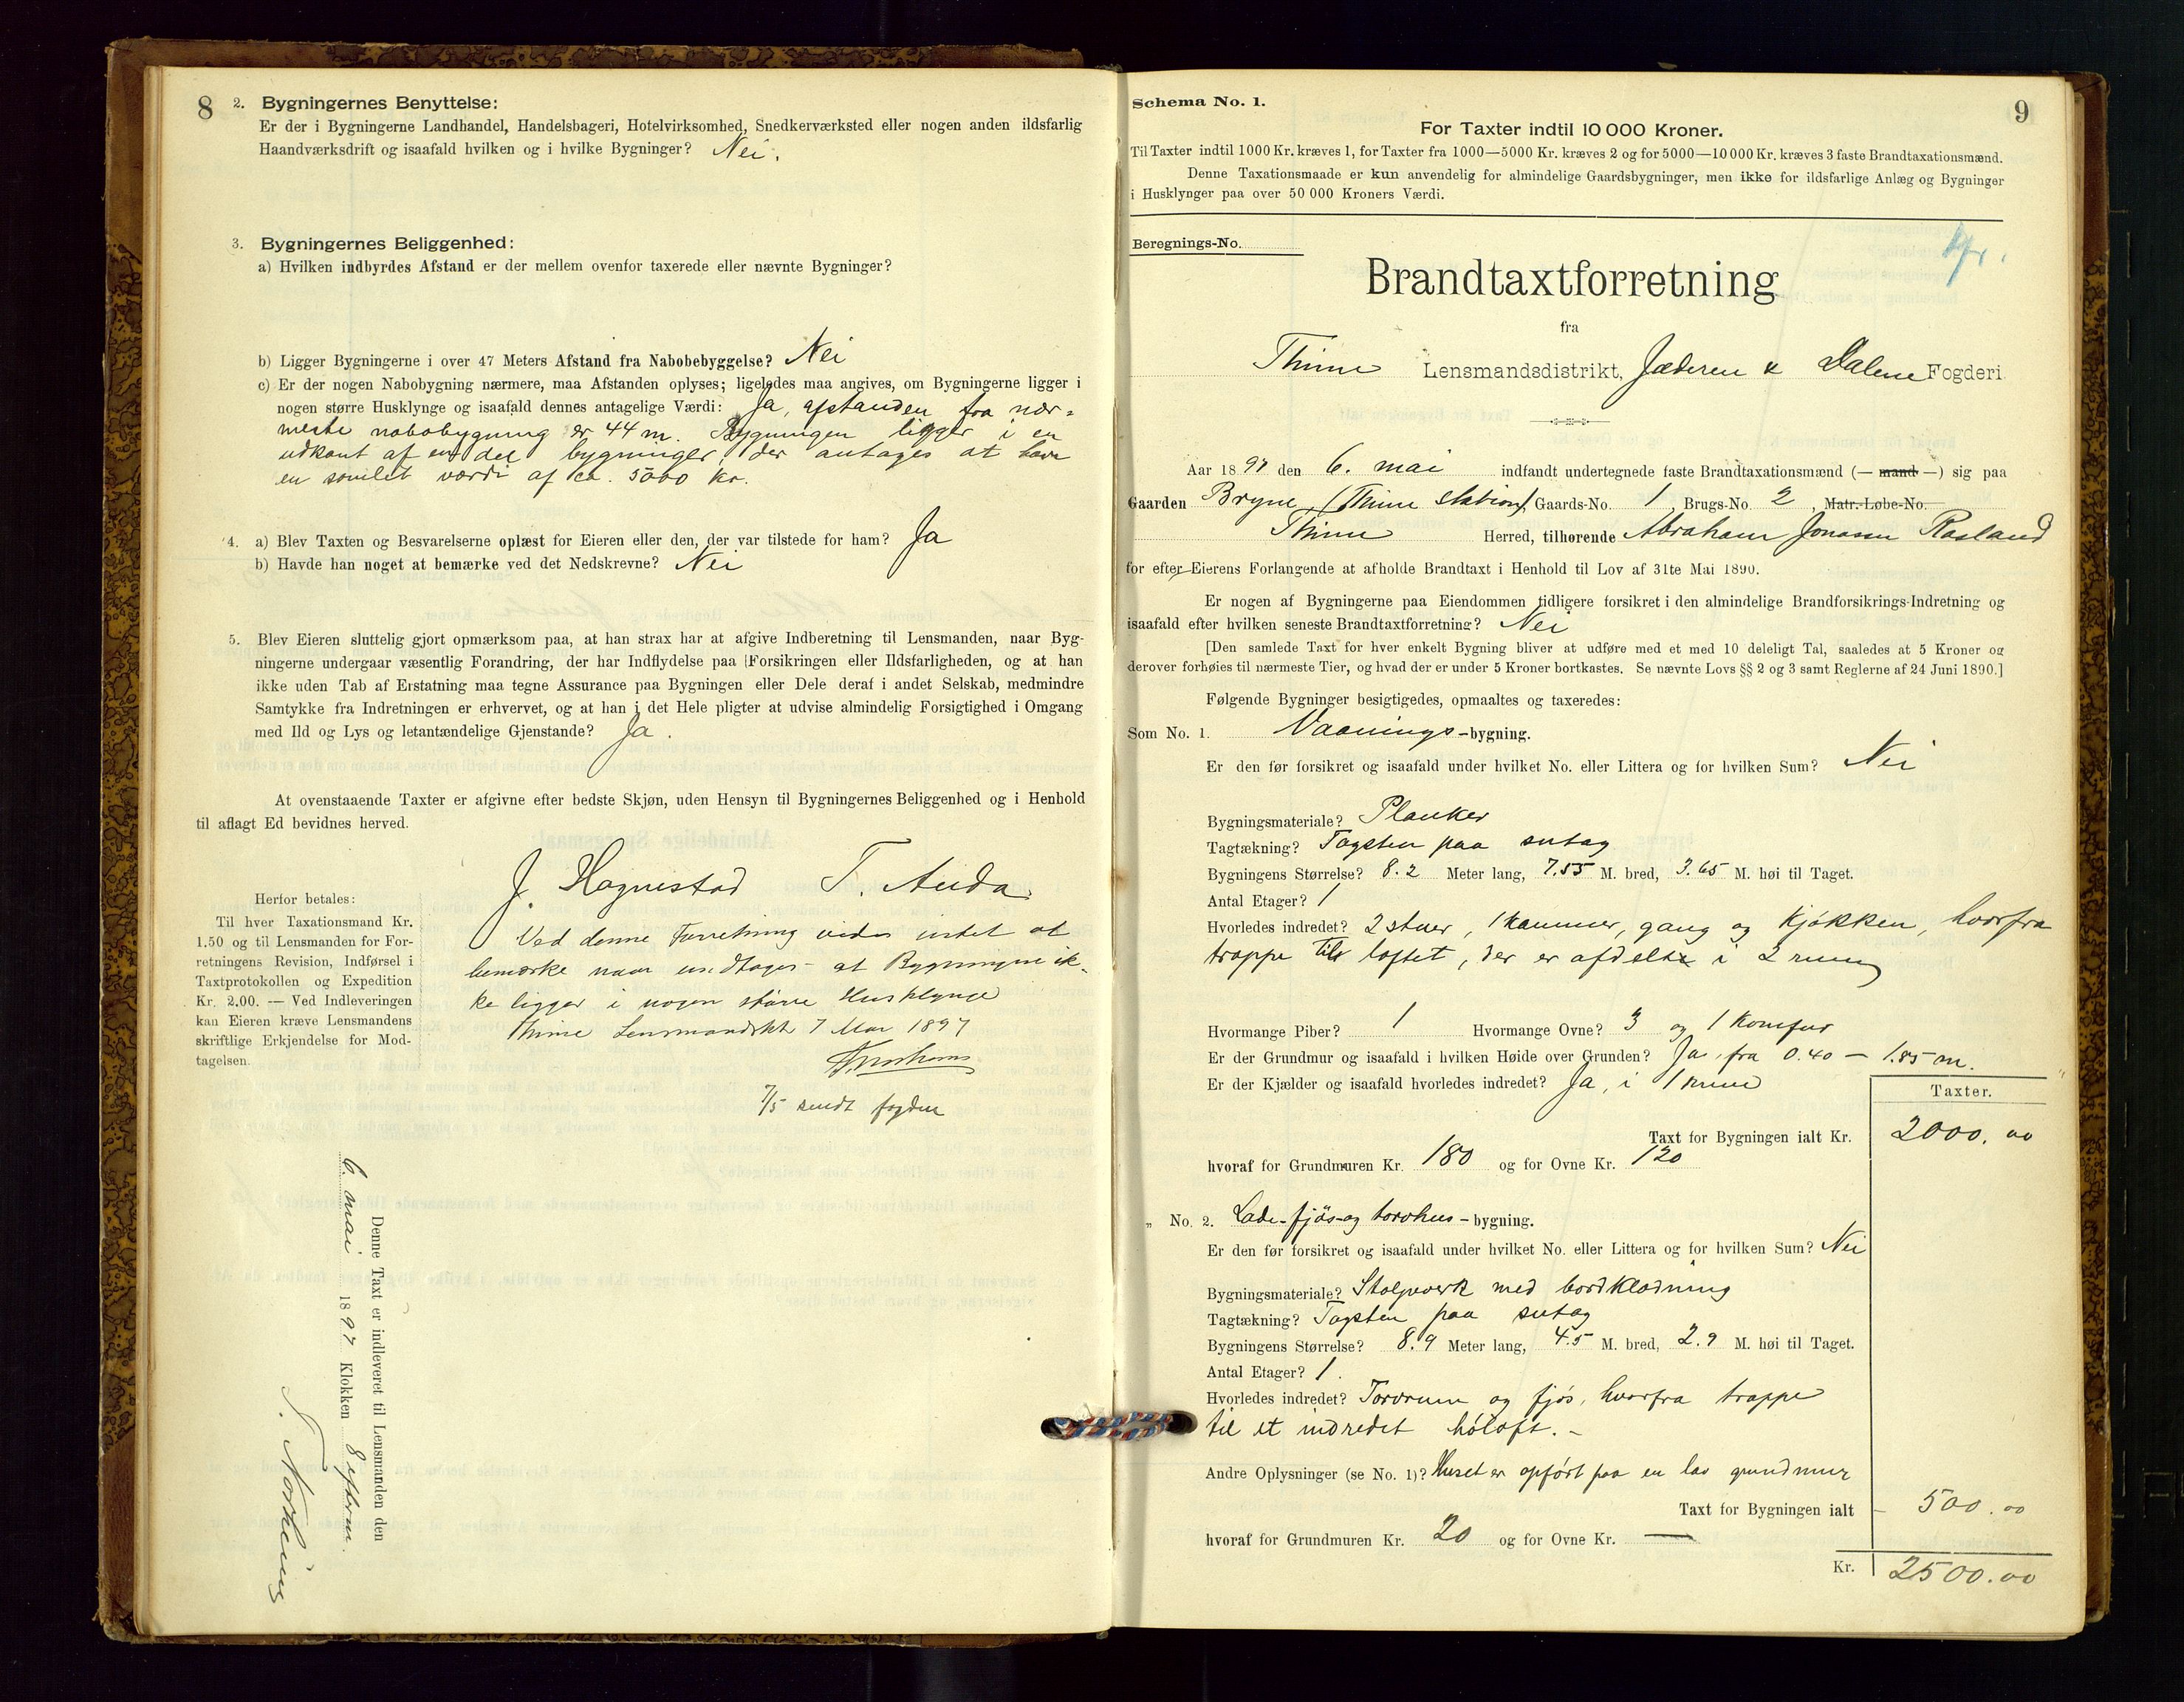 8
2. Bygningernes Benyttelse:
Er der i Bygningerne Landhandel, Handelsbageri, Hotelvirksomhed, Snedkerværksted eller nogen anden ildsfarlig
Haandværksdrift og isaafald hvilken og i hvilke Bygninger? Nei.
3. Bygningernes Beliggenhed:
a) Hvilken indbyrdes Afstand er der mellem ovenfor taxerede eller nævnte Bygninger?
b) Ligger Bygningerne i over 47 Meters Afstand fra Nabobebyggelse? Nei
c) Er der nogen Nabobygning nærmere, maa Afstanden oplyses; ligeledes maa angives, om Bygningerne ligger i
nogen større Husklynge og isaafald dennes antagelige Værdi: Ja, afstanden fra nær-
meste nabobygning er 44 m. Bygningen ligger i en
udkant af en del bygninger, der antages at have
en samlet værdi af ca. 5000 kr.
4. a) Blev Taxten og Besvarelserne oplæst for Eieren eller den, der var tilstede for ham? Ja
b) Havde han noget at bemærke ved det Nedskrevne? Nei
5. Blev Eieren sluttelig gjort opmærksom paa, at han strax har at afgive Indberetning til Lensmanden, naar Byg-
ningerne undergaar væsentlig Forandring, der har Indflydelse paa Forsikringen eller Ildsfarligheden, og at han
ikke uden Tab af Erstatning maa tegne Assurance paa Bygningen eller Dele deraf i andet Selskab, medmindre
Samtykke fra Indretningen er erhvervet, og at han i det Hele pligter at udvise almindelig Forsigtighed i Omgang
med Ild og Lys og letantændelige Gjenstande? Ja.
At ovenstaaende Taxter er afgivne efter bedste Skjøn, uden Hensyn til Bygningernes Beliggenhed og i Henhold
til aflagt Ed bevidnes herved.
J. Hognestad T. Auda
Herfor betales:
Til hver Taxationsmand Kr.
1.50 og til Lensmanden for For-
retningens Revision, Indførsel i
Taxtprotokollen og Expedition
Kr. 2.00. — Ved Indleveringen
kan Eieren kræve Lensmandens
skriftlige Erkjendelse for Mod-
tagelsen.
Ved denne Forretning vides intet at
bemærke naar undtages at Bygningen ik-
ke ligger i nogen større Husklynge
Thime Lensmandskt 7 Mai 1897
7/5 sendt fogden
Denne Taxt er indleveret til Lensmanden den
6. mai 1897 Klokken 8 efterm.
9
Schema No. 1.
For Taxter indtil 10 000 Kroner.
Til Taxter indtil 1000 Kr. kræves 1, for Taxter fra 1000—5000 Kr. kræves 2 og for 5000—10 000 Kr. kræves 3 faste Brandtaxationsmænd.
Denne Taxationsmaade er kun anvendelig for almindelige Gaardsbygninger, men ikke for ildsfarlige Anlæg og Bygninger
i Husklynger paa over 50 000 Kroners Værdi.
Beregnings-No.
Brandtaxtforretning
fra
Thime Lensmandsdistrikt, Jæderen & Dalene Fogderi
Aar 1897 den 6. mai indfandt undertegnede faste Brandtaxationsmænd (— mand —) sig paa
Gaarden Bryne (Thime station) Gaards-No. 1, Brugs-No. 2, Matr.-Løbe-No.
Thime Herred, tilhørende Abraham Jonassen Rosland
for efter Eierens Forlangende at afholde Brandtaxt i Henhold til Lov af 31te Mai 1890.
Er nogen af Bygningerne paa Eiendommen tidligere forsikret i den almindelige Brandforsikrings-Indretning og
isaafald efter hvilken seneste Brandtaxtforretning? Nei
[Den samlede Taxt for hver enkelt Bygning bliver at udføre med et med 10 deleligt Tal, saaledes at 5 Kroner og
derover forhøies til nærmeste Tier, og hvad der er under 5 Kroner bortkastes. Se nævnte Lovs §§ 2 og 3 samt Reglerne af 24 Juni 1890.]
Følgende Bygninger besigtigedes, opmaaltes og taxeredes:
Som No. 1. Vaanings-bygning.
Er den før forsikret og isaafald under hvilket No. eller Littera og for hvilken Sum? Nei
Bygningsmateriale? Planker
Tagtækning? Tagsten paa sutag
Bygningens Størrelse? 8.2 Meter lang, 7.55 M. bred, 3.65 M. høi til Taget.
Antal Etager? 1
Hvorledes indredet? 2 stuer, 1 kammer, gang og kjøkken, hvorfra
trappe til loftet, der er afdelt i 2 rum
Hvormange Piber? 1 Hvormange Ovne? 3 og 1 komfur
Er der Grundmur og isaafald i hvilken Høide over Grunden? Ja, fra 0.40 — 1.85 m.
Er der Kjælder og isaafald hvorledes indredet? Ja, i 1 rum
Taxter.
Taxt for Bygningen ialt Kr. 2000.00
hvoraf for Grundmuren Kr. 180 og for Ovne Kr. 120
" No. 2. Lade-fjøs-og torvhus-bygning.
Er den før forsikret og isaafald under hvilket No. eller Littera og for hvilken Sum? Nei
Bygningsmateriale? Stolpeverk med bordklædning
Tagtækning? Tagsten paa sutag
Bygningens Størrelse? 8.9 Meter lang, 4.5 M. bred, 2.9 M. høi til Taget.
Antal Etager? 1.
Hvorledes indredet? Torvrum og fjøs, hvorfra trappe
til et indredet høloft. —
Andre Oplysninger (se No. 1)? Huset er opført paa en lav grundmur
Taxt for Bygningen ialt 500.00
hvoraf for Grundmuren Kr. 20 og for Ovne Kr. —
Kr. 2500.00